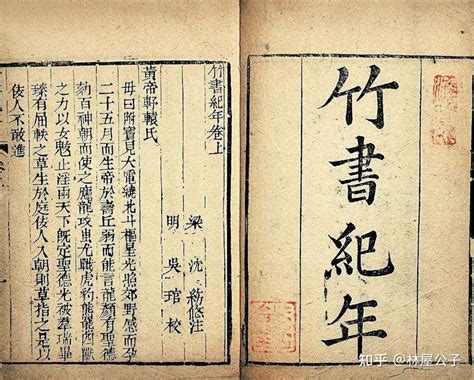 竹書紀年
竹書紀年卷上
梁 沈約附注
明 吳琯校
黃帝軒轅氏
母曰附寶見大電繞北斗樞星光照郊野感而孕
二十五月而生帝於壽丘弱而能言龍顏有聖德
劾百神朝而使之應龍攻蚩尤戰虎豹熊羆四獸
之力以女魃止淫雨天下既定聖德光被群瑞畢
臻有屈軼之草生於庭佞人入朝則草指之是以
佞人不敢進
知乎 @林屋公子